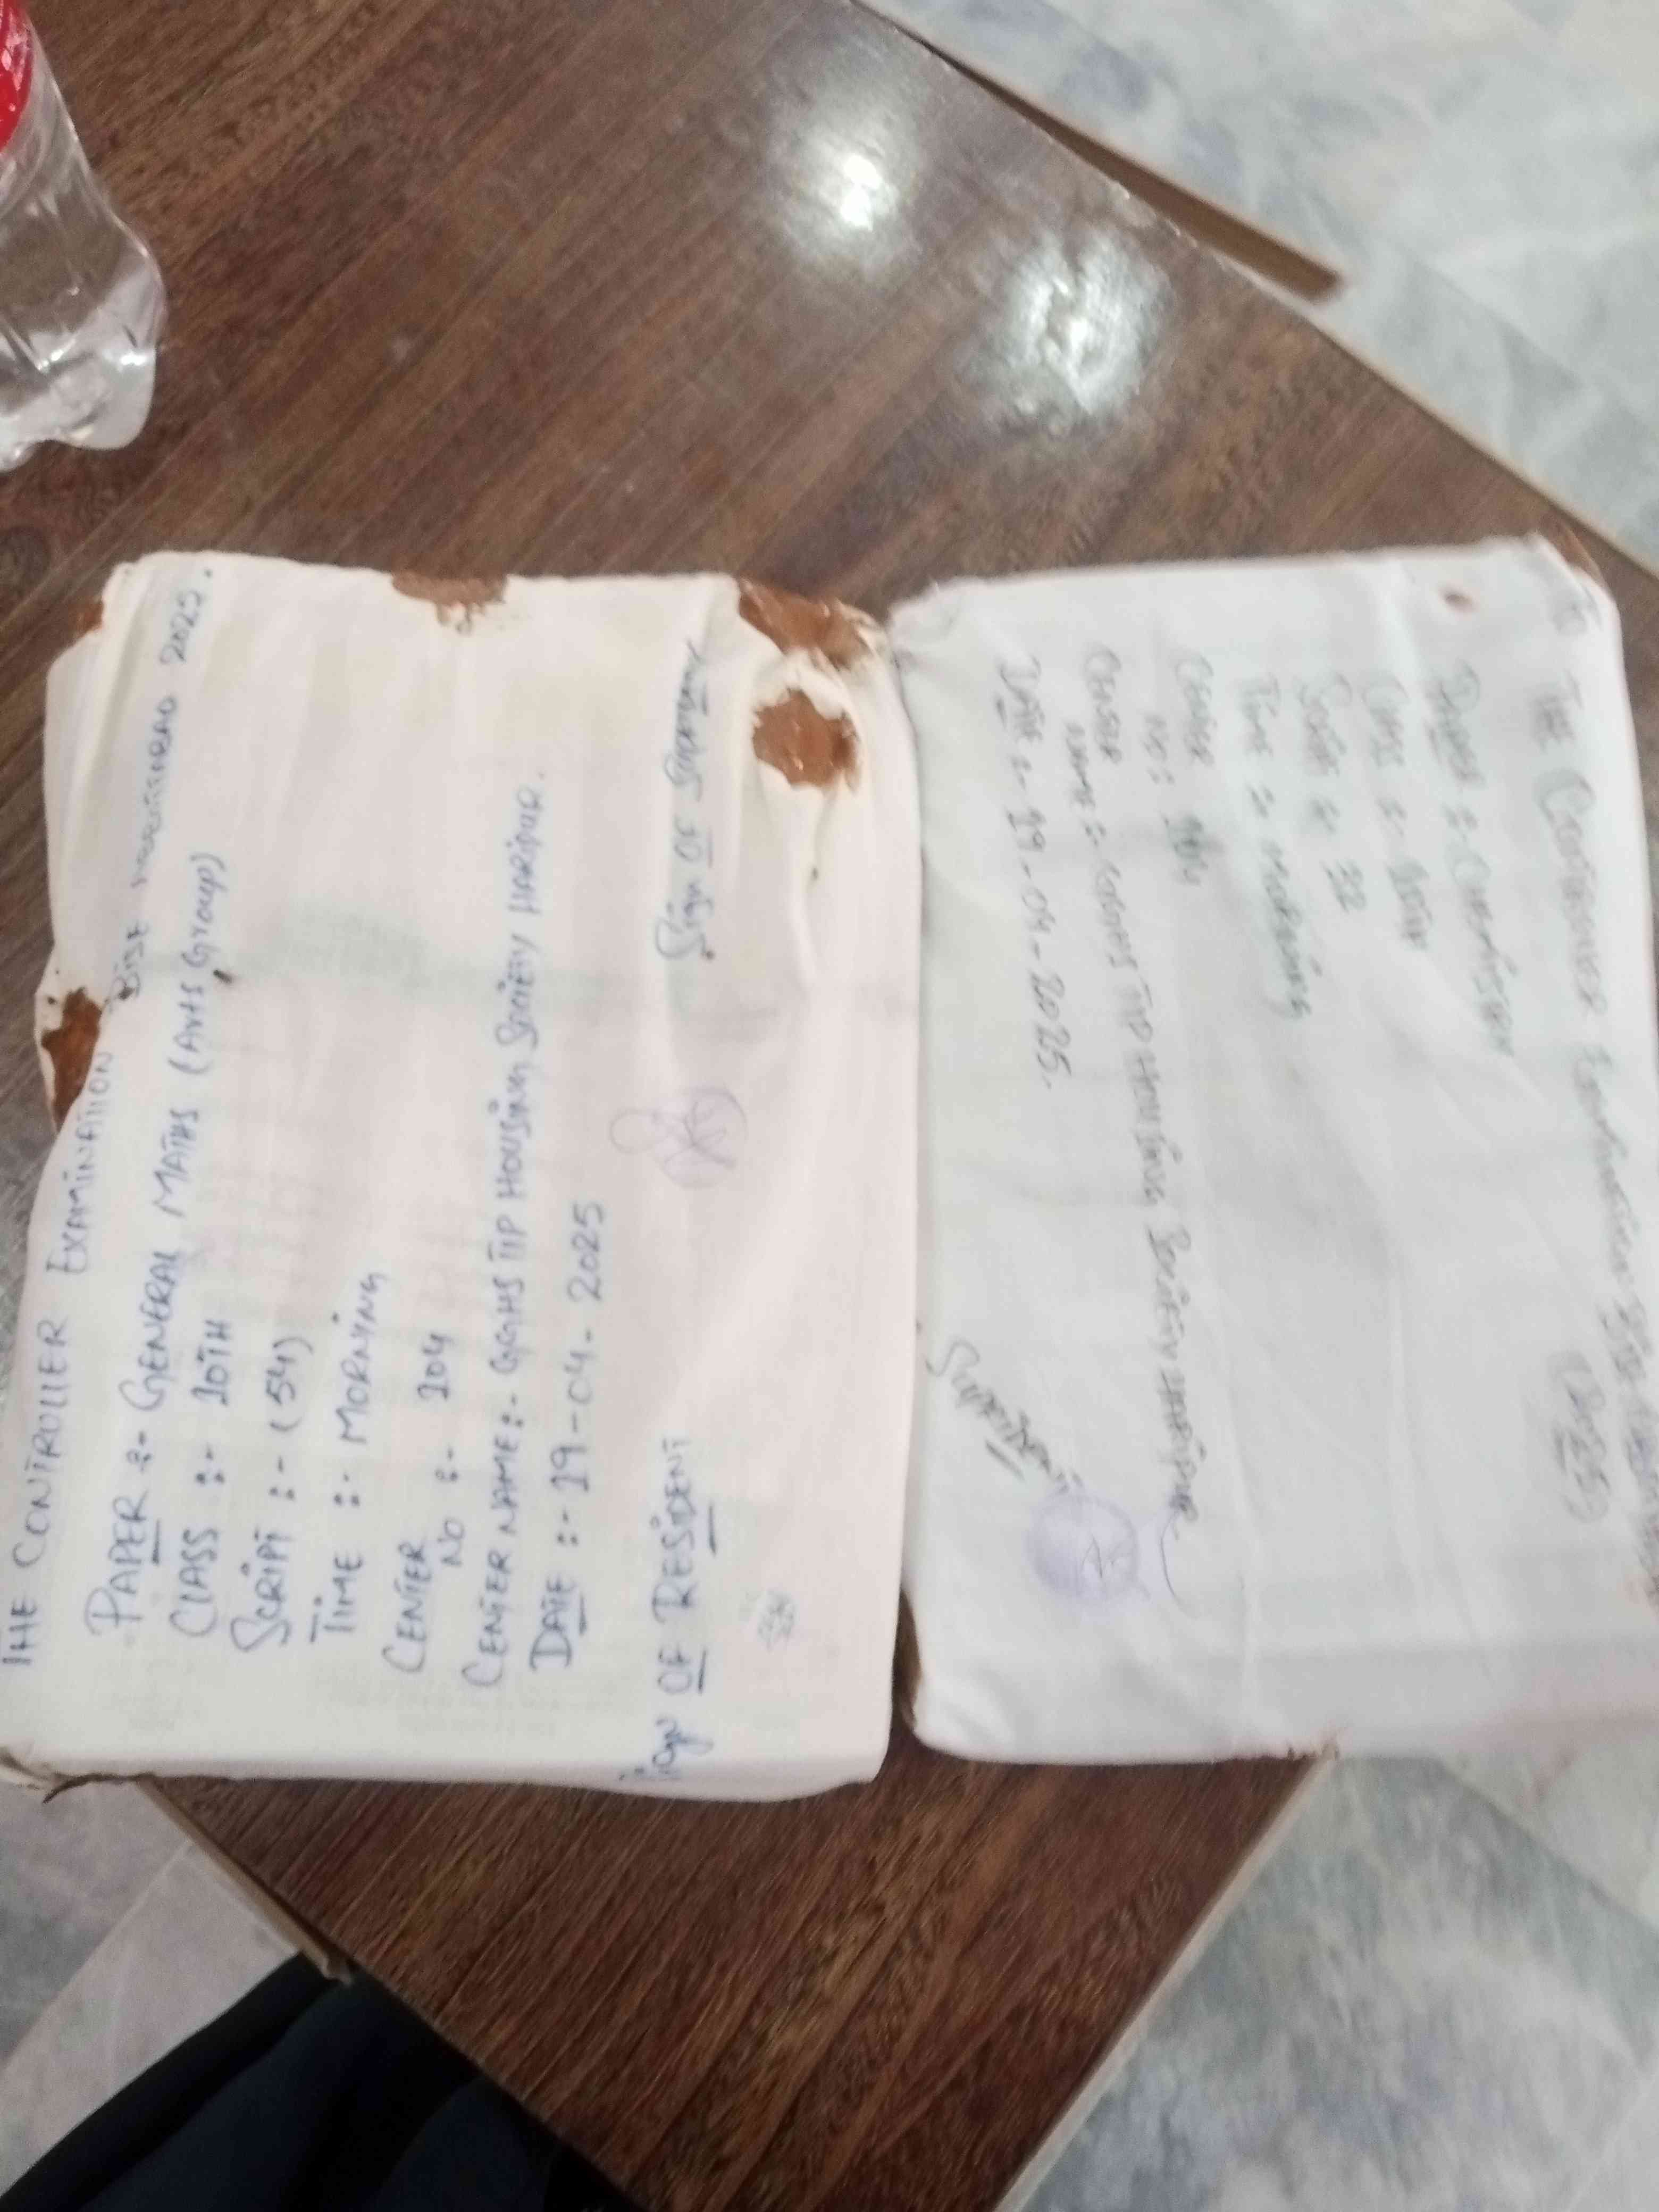 THE CONTROLLER EXAMINATION BISE ABBOTTABAD 2025.
PAPER :- GENERAL MATHS (Arts Group)
CLASS :- 10TH
SCRIPT :- (54)
TIME :- MORNING
CENTER NO :- 104
CENTER NAME :- GGHS TIP HOUSING SOCIETY HARIPUR.
DATE :- 19-04-2025
Sign OF RESIDENT
Sign OF
THE CONTROLLER
(2025)
PAPER :- CHEMISTRY
CLASS :- 10TH
:- 32
TIME :- MORNING
CENTER NO : 104
CENTER NAME :- GGHS TIP HOUSING SOCIETY HARIPUR
DATE :- 19-04-2025.